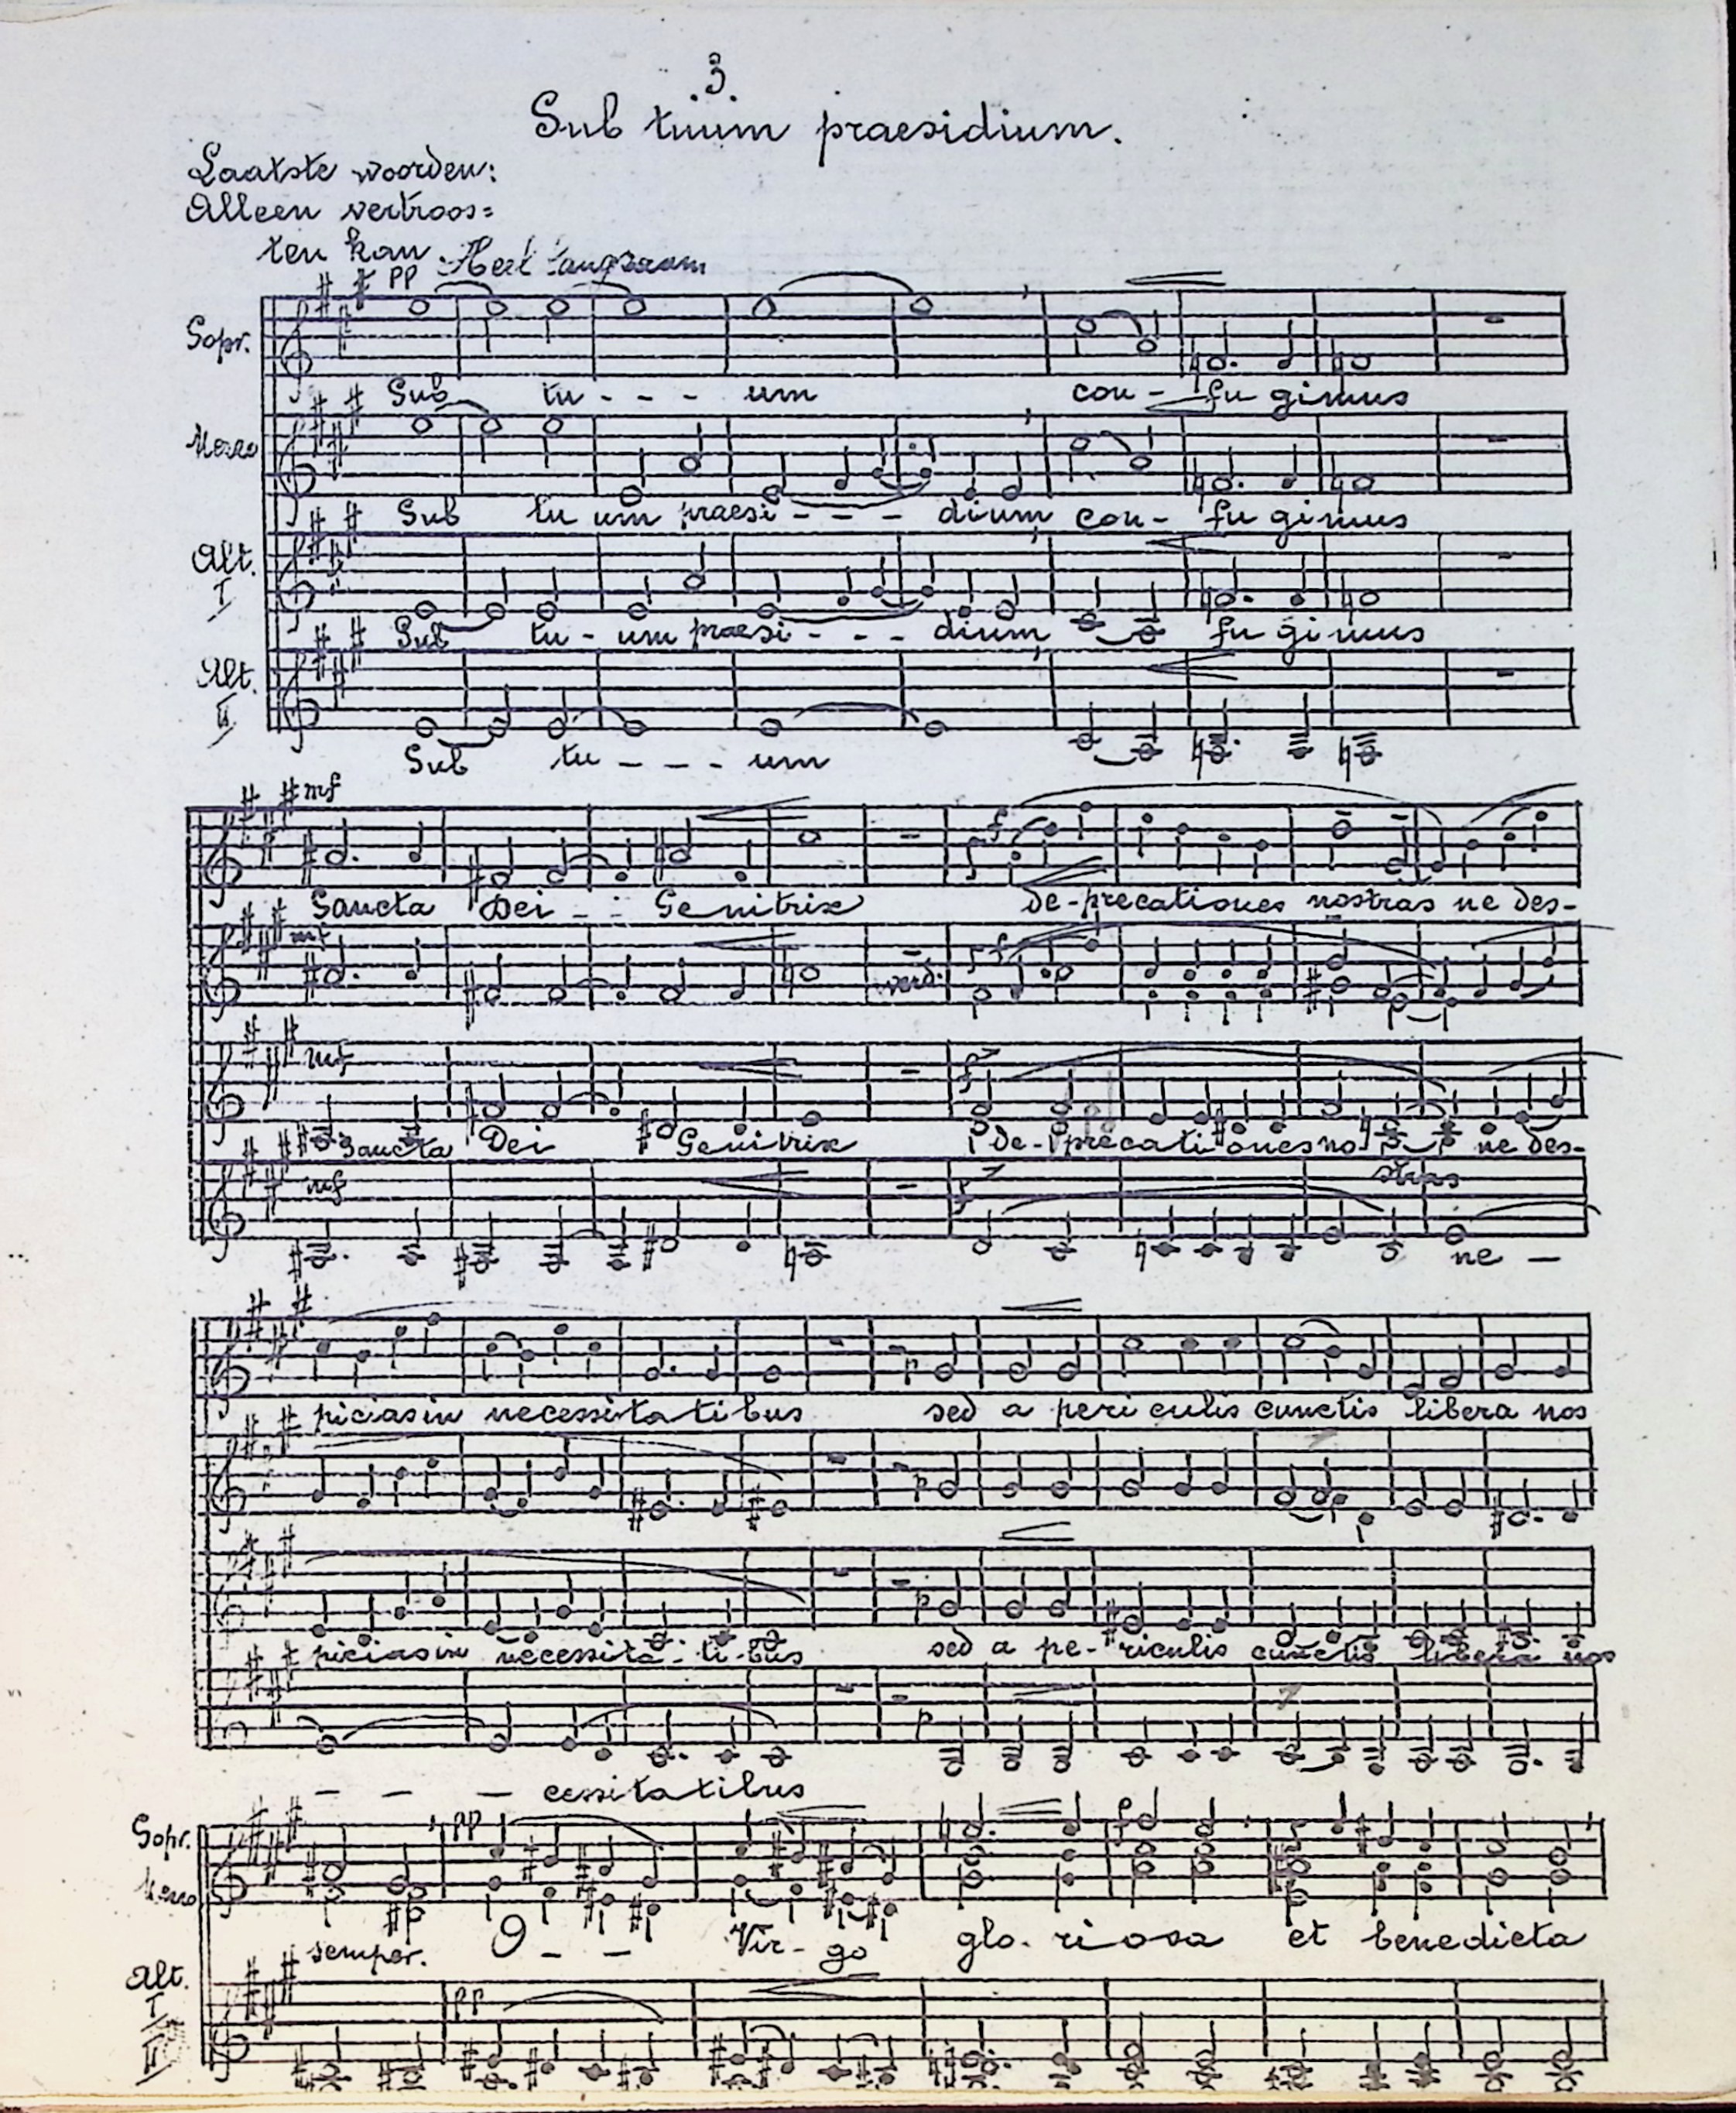 3.
Sub tuum praesidium.
Laatste woorden:
Alleen vertroos=
ten kan.
pp Heel langzaam
Sopr.
Sub tu - - - um con - fu gimus
Mezzo
Sub tu um praesi - - - dium con - fu gimus
Alt. I
Sub tu - um praesi - - - dium fu gimus
Alt. II
Sub tu - - - um
mf f
Sancta Dei - - Genitrix de-precationes nostras ne des-
mf verd. f
mf f
Sancta Dei Genitrix De-precationes no
stras
ne des-
mf f
ne -
p
piciasin necessitatibus sed a periculis cunctis libera nos
p
p
piciasin necessita-ti-bus sed a pe-riculis cunctis libera nos
p
- - - cessitatibus
Sopr.
Mezzo
pp f
semper. O - - Vir-go glo-riosa et benedicta
Alt. I II
pp